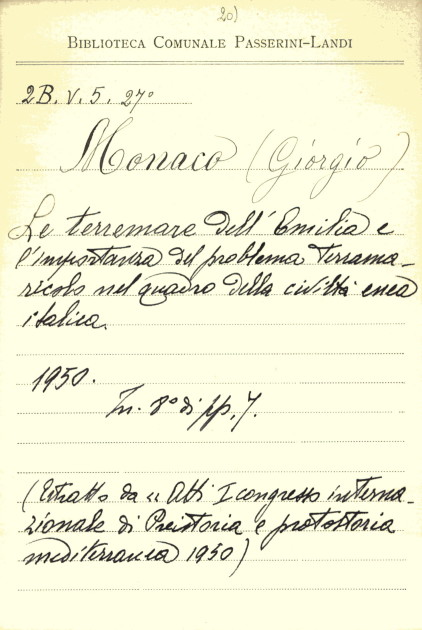 20)
BIBLIOTECA COMUNALE PASSERINI-LANDI
2B. V. 5. 27°
Monaco (Giorgio)
Le terremare dell'Emilia e
l'importanza del problema terrama-
ricolo nel quadro della civiltà enea
italica.
1950.
In. 8° di pp. 7.
(Estratto da « Atti I congresso interna-
zionale di Preistoria e protostoria
mediterranea 1950)